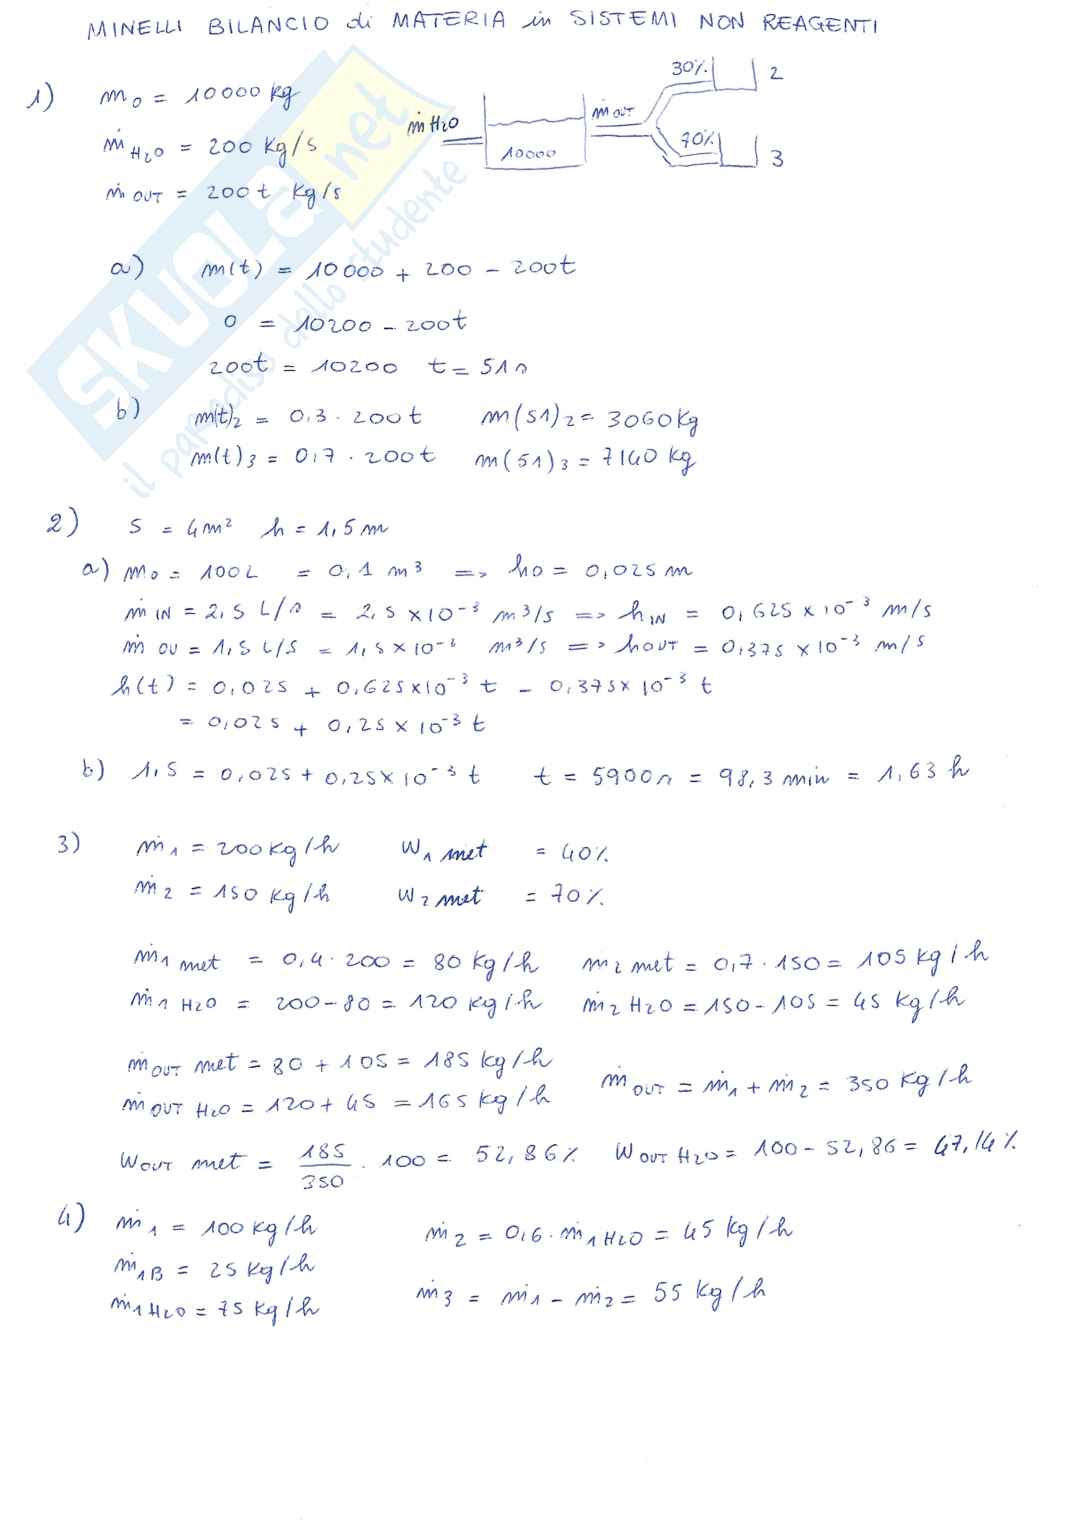 MINELLI BILANCIO di MATERIA in SISTEMI NON REAGENTI
1) m0 = 10000 kg
ṁH2O = 200 kg/s
ṁOUT = 200t kg/s
ṁH2O 10000 ṁOUT 30% 2
70% 3
a) m(t) = 10000 + 200 - 200t
0 = 10200 - 200t
200t = 10200 t = 51s
b) m(t)2 = 0,3 · 200t m(51)2 = 3060kg
m(t)3 = 0,7 · 200t m(51)3 = 7140 kg
2) S = 4m² h = 1,5m
a) m0 = 100L = 0,1 m³ => h0 = 0,025 m
ṁIN = 2,5 L/s = 2,5 x10⁻³ m³/s => hIN = 0,625 x 10⁻³ m/s
ṁOU = 1,5 L/s = 1,5 x 10⁻³ m³/s => hOUT = 0,375 x 10⁻³ m/s
h(t) = 0,025 + 0,625x10⁻³ t - 0,375x 10⁻³ t
= 0,025 + 0,25 x 10⁻³ t
b) 1,5 = 0,025 + 0,25x10⁻³ t t = 5900s = 98,3 min = 1,63 h
3) ṁ1 = 200kg/h W1 met = 40%
ṁ2 = 150 kg/h W2 met = 70%
ṁ1 met = 0,4 · 200 = 80 kg/h m2 met = 0,7 · 150 = 105 kg/h
ṁ1 H2O = 200-80 = 120 kg/h ṁ2 H2O = 150-105 = 45 kg/h
ṁOUT met = 80 + 105 = 185 kg/h ṁOUT = ṁ1 + ṁ2 = 350 kg/h
ṁOUT H2O = 120 + 45 = 165 kg/h
WOUT met = 185/350 · 100 = 52,86% WOUT H2O = 100 - 52,86 = 47,14%
4) ṁ1 = 100 kg/h ṁ2 = 0,6 · ṁ1 H2O = 45 kg/h
ṁ1B = 25 kg/h
ṁ1 H2O = 75 kg/h ṁ3 = ṁ1 - ṁ2 = 55 kg/h
SKUOLA.net
il paradiso dello studente